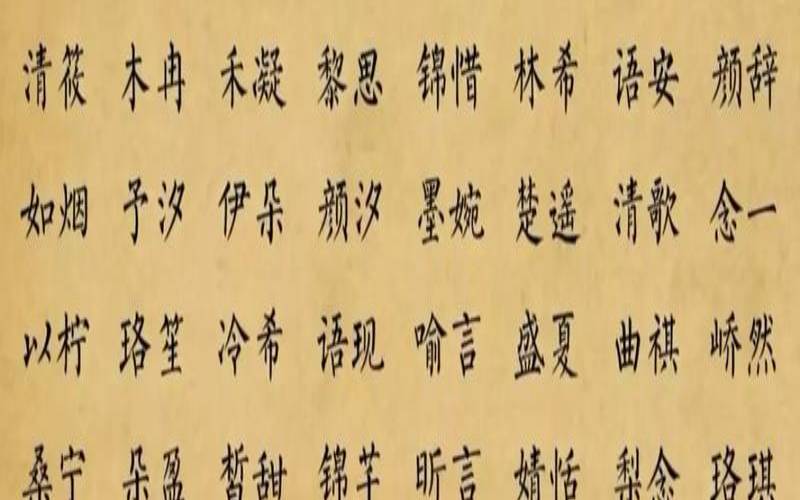 清筱 木冉 禾凝 黎思 锦惜 林希 语安 颜辞
如烟 予汐 伊朵 颜汐 墨婉 楚遥 清歌 念一
以柠 珞笙 冷希 语现 喻言 盛夏 曲祺 峤然
桑宁 朵盈 皙甜 锦芊 昕言 婧恬 梨念 珞琪